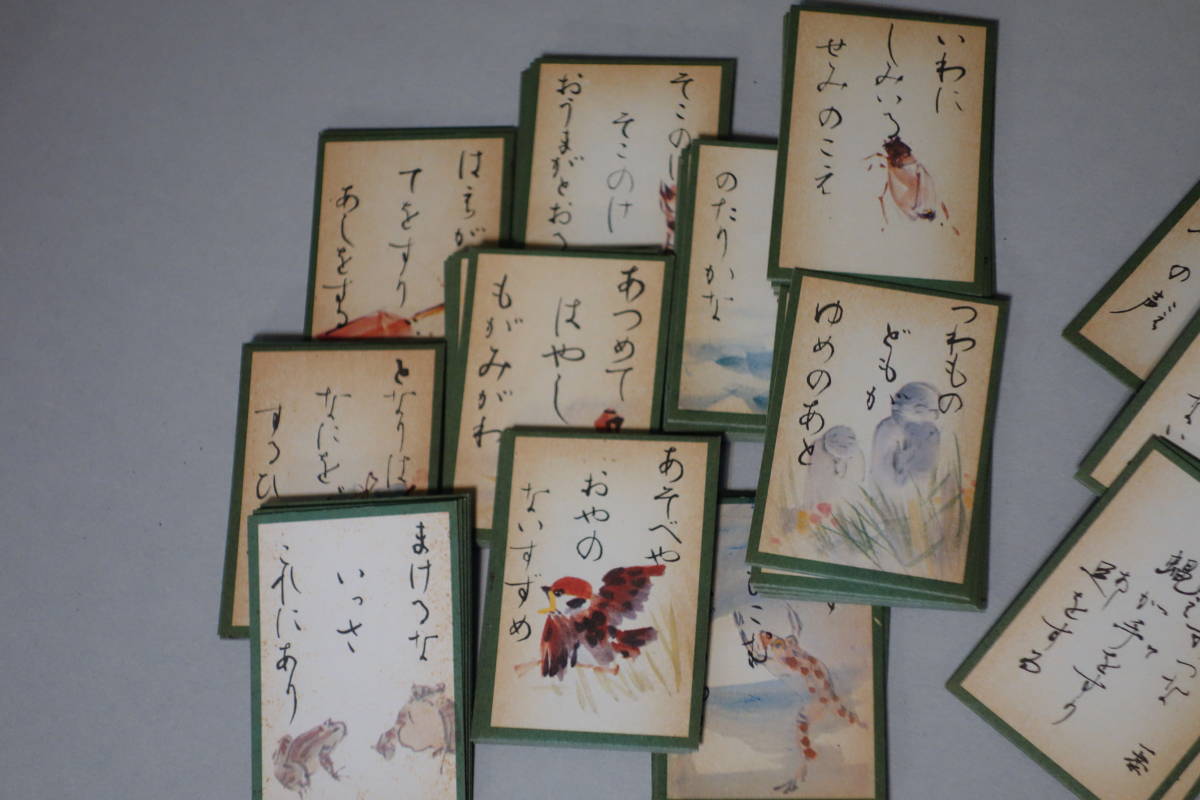 いわに
しみいる
せみのこえ
そこのけ
おうまがとおる
はえが
てをすり
あしをする
のたりかな
あつめて
はやし
もがみがわ
つわもの
どもが
ゆめのあと
となりは
なにを
するひ
あそべや
おやの
ないすずめ
まけるな
いっさ
これにあり
の声
手をすり
足をする
一茶